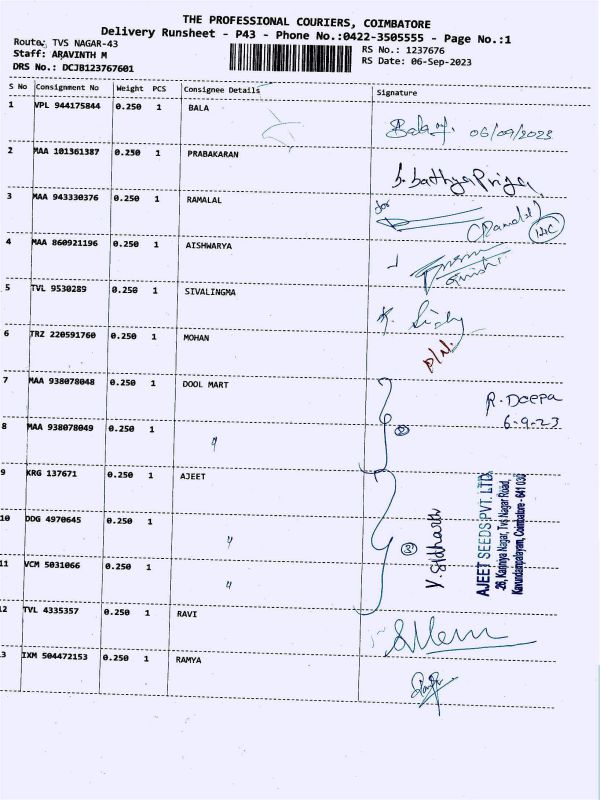 THE PROFESSIONAL COURIERS, COIMBATORE
Delivery Runsheet - P43 - Phone No.:0422-3505555 - Page No.:1
Route: TVS NAGAR-43
RS No.: 1237676
Staff: ARAVINTH M
RS Date: 06-Sep-2023
DRS No.: DCJB123767601
S No Consignment No Weight PCS Consignee Details Signature
1 VPL 944175844 0.250 1 BALA
06/09/2023
2 MAA 101361387 0.250 1 PRABAKARAN
S. Sathya Priya
3 MAA 943330376 0.250 1 RAMALAL
for
4 MAA 860921196 0.250 1 AISHWARYA
5 TVL 9530289 0.250 1 SIVALINGMA
6 TRZ 220591760 0.250 1 MOHAN
D/N.
7 MAA 938078048 0.250 1 DOOL MART
R. Deepa
6-9-23
8 MAA 938078049 0.250 1 〃
2
9 KRG 137671 0.250 1 AJEET
10 DDG 4970645 0.250 1 〃
3
11 VCM 5031066 0.250 1 〃
Y. Siddharth
AJEET SEEDS PVT. LTD.
Kavundampalayam, Coimbatore - 641 030
12 TVL 4335357 0.250 1 RAVI
3 IXM 504472153 0.250 1 RAMYA